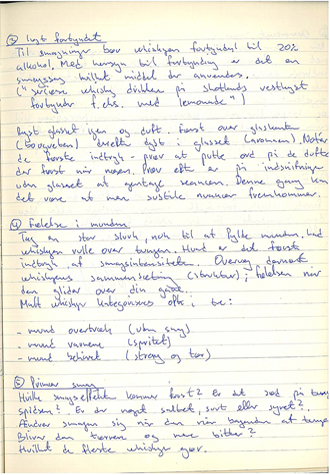 ③ lugt fortyndet
Til smagninger bør whiskyen fortyndes til 20%
alkohol. Med hensyn til fortynding er det en
smagssag hvilket middel der anvendes.
("seriøse whisky drikkere på Skotlands vestkyst
fortynder f.eks. med lemonade")
lugt glasset igen og duft. Først over glaskanten
(bouqueten) derefter dybt i glasset (aromaen). Notér
de første indtryk - prøv at putte ord på de dufte
der først når næsen. Prøv efter et par indsnifninger
uden glasset at gentage seancen. Denne gang kan
det være at man subtile nuancer fremkommer.
④ Følelse i munden
Tag en stor slurk, nok til at fylde munden. Lad
whiskyen rulle over tungen. Hvad er det første
indtryk af smagsintensiteten. Overvej dernæst
whiskyens sammensætning (struktur); følelsen når
den glider over din gane.
Malt whiskyer kategoriseres ofte i tre:
- mund overtræk
- mund varmene (spritet)
- mund (streng og tør)
⑤ Primær smag
Hvilke smagseffekter kommer først? Er det sød på tunge
spidsen? Er der noget saltet, surt eller syret?
Ændrer smagen sig når den når bagenden af tungen
Bliver den tørrere og mere bitter?
Hvilket de fleste whiskyer gør.